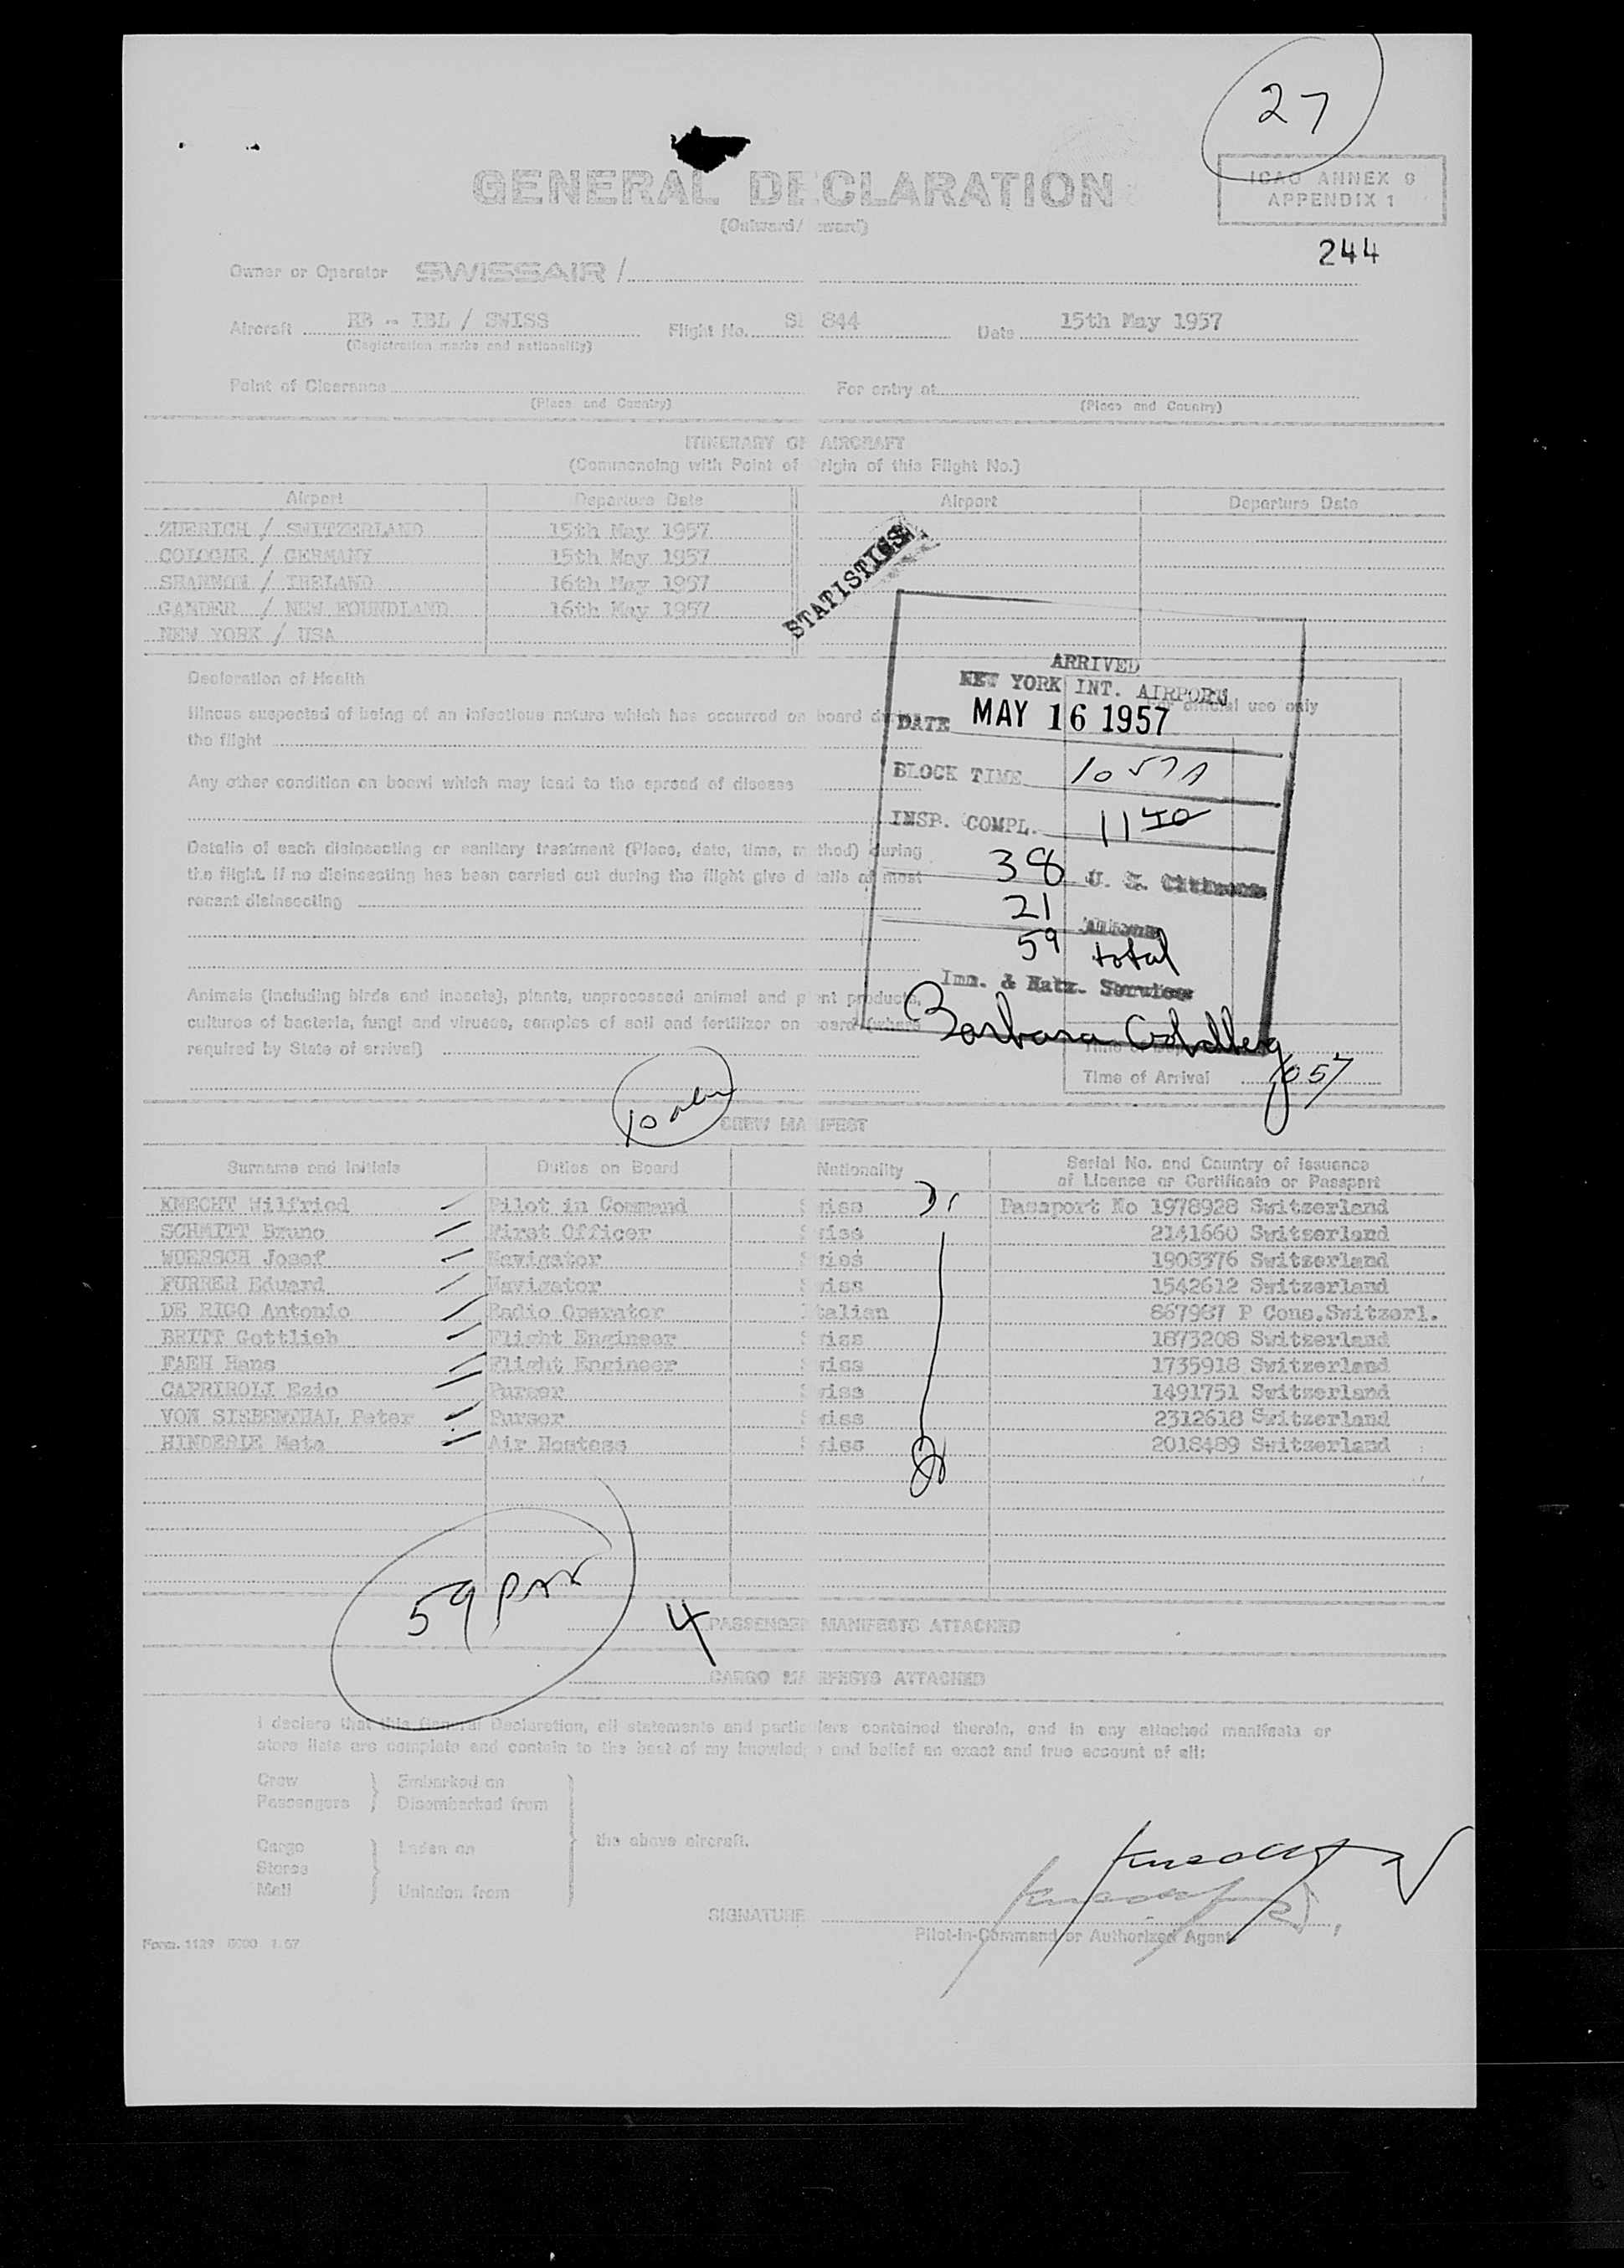 27
GENERAL DECLARATION
(Outward/ nward)
ICAO ANNEX 9
APPENDIX 1
244
Owner or Operator SWISSAIR /
Aircraft HB - IBL / SWISS Flight No. S 844 Date 15th May 1957
(Registration marks and nationality)
Point of Clearance For entry at
(Place and Country) (Place and Country)
ITINERARY OF AIRCRAFT
(Commencing with Point of rigin of this Flight No.)
Airport Departure Date Airport Departure Date
ZUERICH / SWITZERLAND 15th May 1957
COLOGNE / GERMANY 15th May 1957
SHANNON / IRELAND 16th May 1957
GANDER / NEW FOUNDLAND 16th May 1957
NEW YORK / USA
STATISTICS
ARRIVED
NEW YORK INT. AIRPORT
DATE MAY 16 1957
BLOCK TIME 1057A
INSP. COMPL. 1140
38 U. S. Citizens
21 Aliens
59 total
Imm. & Natz. Service
Barbara Goldberg
For official use only
Declaration of Health
Illness suspected of being of an infectious nature which has occurred on board during
the flight
Any other condition on board which may lead to the spread of disease
Details of each disinsecting or sanitary treatment (Place, date, time, m thod) during
the flight. If no disinsecting has been carried out during the flight give d tails of most
recent disinsecting
Animals (including birds and insects), plants, unprocessed animal and p ant products,
cultures of bacteria, fungi and viruses, samples of soil and fertilizer on oard (where
required by State of arrival)
Time of Arrival 1057
CREW MA IFEST
Surname and Initials Duties on Board Nationality Serial No. and Country of Issuance
of Licence or Certificate or Passport
KNECHT Wilfried Pilot in Command Swiss Passport No 1978928 Switzerland
SCHMITT Bruno First Officer Swiss 2141660 Switzerland
WUERSCH Josef Navigator Swiss 1908376 Switzerland
FURRER Eduard Navigator Swiss 1542612 Switzerland
DE RIGO Antonio Radio Operator Italian 867987 P Cons.Switzerl.
BRITT Gottlieb Flight Engineer Swiss 1873208 Switzerland
FAEH Hans Flight Engineer Swiss 1735918 Switzerland
CAPRIROLI Ezio Purser Swiss 1491751 Switzerland
VON SIEBENTHAL Peter Purser Swiss 2312618 Switzerland
HINDERLE Meta Air Hostess Swiss 2018489 Switzerland
59
4 PASSENGER MANIFESTS ATTACHED
CARGO MA IFESTS ATTACHED
I declare that this General Declaration, all statements and partic lars contained therein, and in any attached manifests or
store lists are complete and contain to the best of my knowledg and belief an exact and true account of all:
Crew Embarked on
Passengers Disembarked from
the above aircraft.
Cargo Laden on
Stores
Mail Unladen from
SIGNATURE
Pilot-in-Command or Authorized Agent